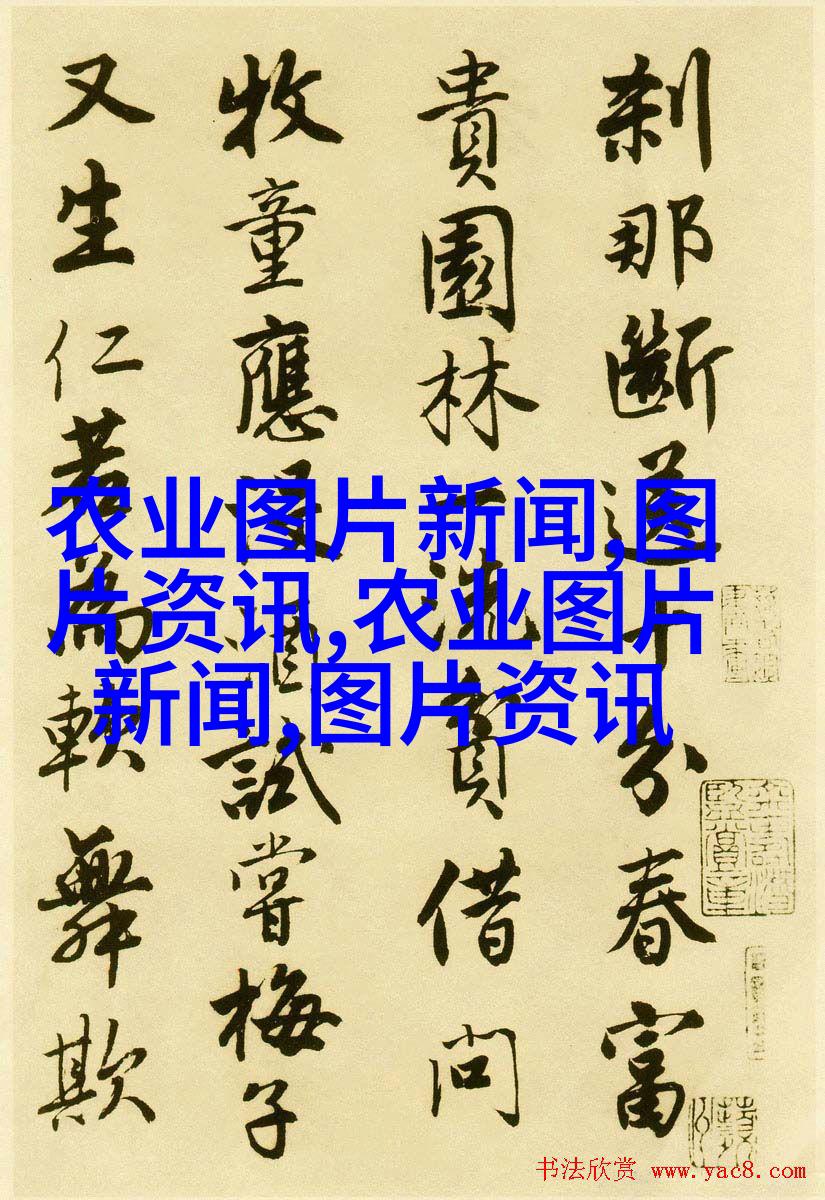 刹那斷送十分春富
貴園林一洗貧借問
牧童應没酒試嘗梅子
又生仁若為軟舞欺
农业图片新闻,图
片资讯,农业图片
新闻,图片资讯
书法欣赏 www.yac8.com